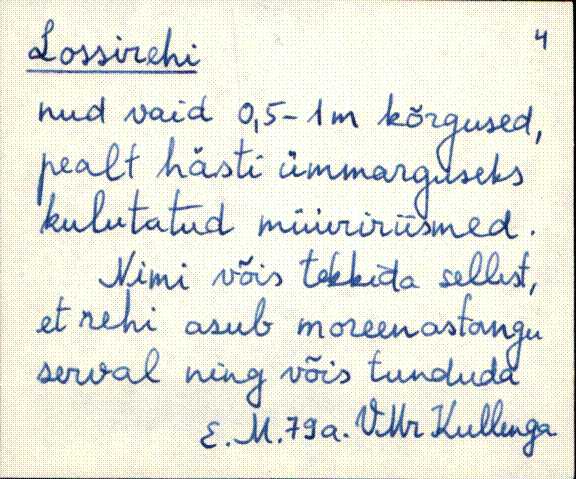 4
Lossirehi
nud vaid 0,5-1m kõrgused,
pealt hästi ümmarguseks
kulutatud müürirüsmed.
Nimi võis tekkida sellest,
et rehi asub moreenastangu
serval ning võis tunduda
E.M.79a. VMr Kullenga